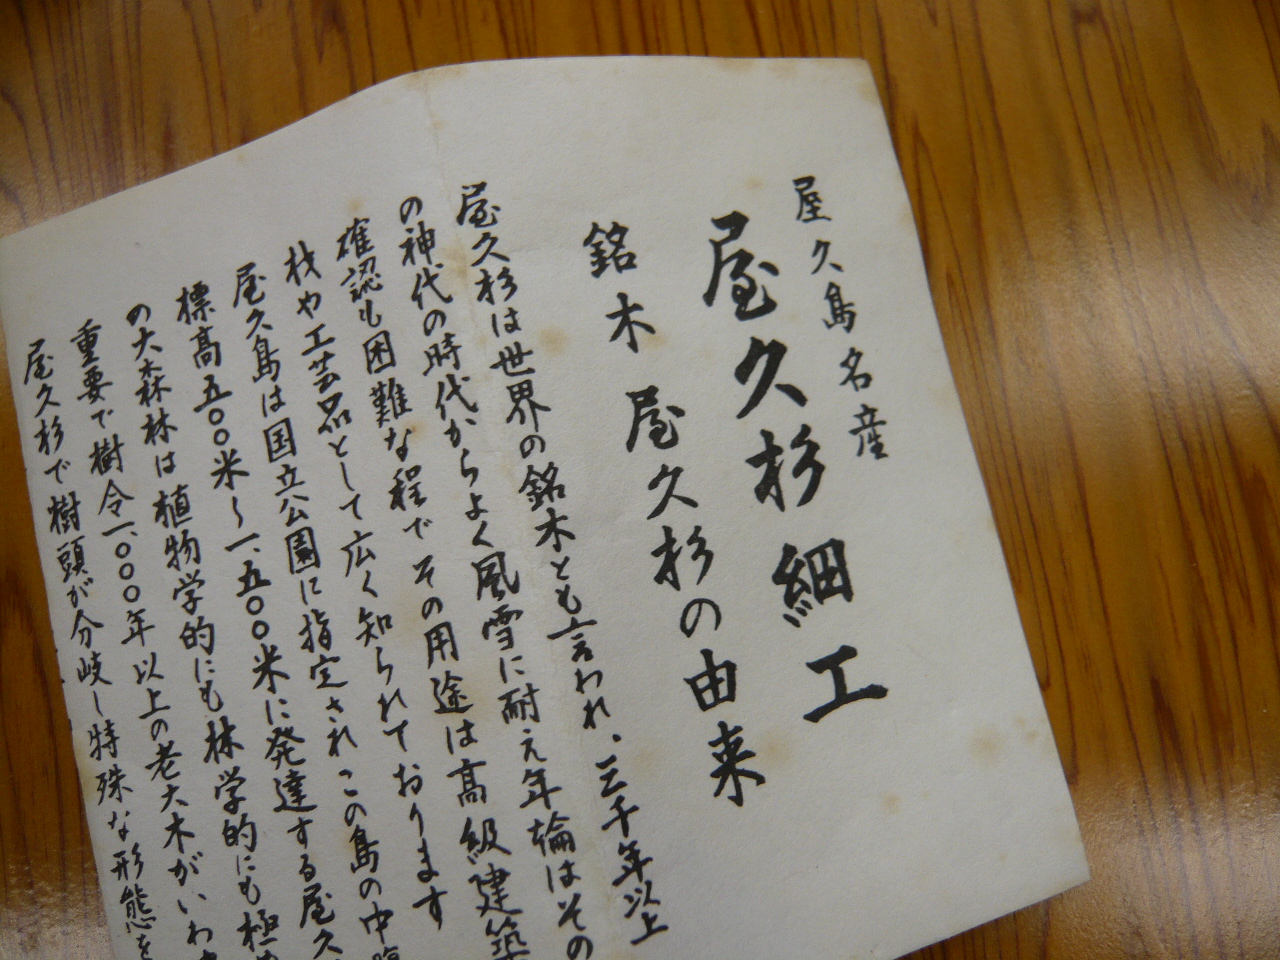 屋久島名産
屋久杉細工
銘木 屋久杉の由来
屋久杉は世界の銘木とも言われ、三千年以上
の神代の時代からよく風雪に耐え年輪はその
確認も困難な程でその用途は高級建築
材や工芸品として広く知られております
屋久島は国立公園に指定されこの島の中
標高五〇〇米〜一、五〇〇米に発達する屋久
の大森林は植物学的にも林学的にも極め
重要で樹令一、〇〇〇年以上の老大木がいわ
屋久杉で樹頭が分岐し特殊な形態を